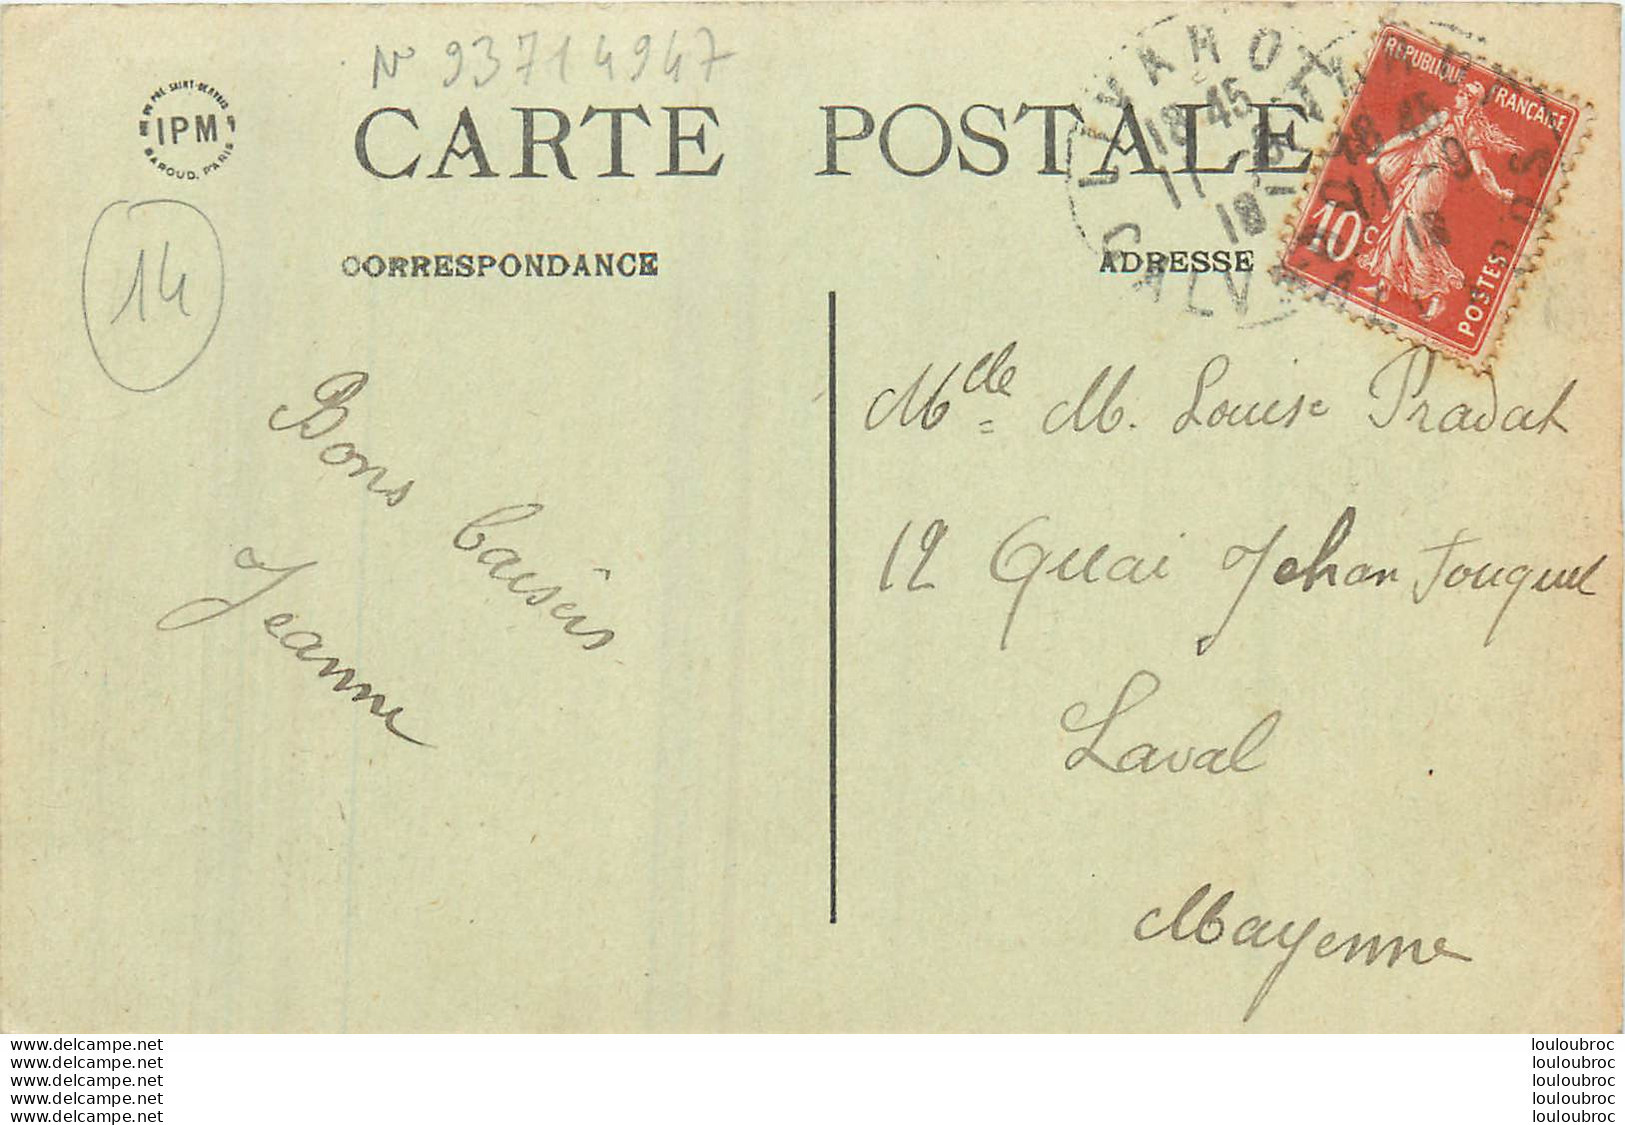 N° 93714947
RUE DU PRÉ SAINT-GERVAIS
IPM
BAROUD, PARIS
CARTE POSTALE
14
CORRESPONDANCE
ADRESSE
LIVAROT
18 45
11 - 9
18
CALVADOS
REPUBLIQUE FRANÇAISE
18 45
11 - 9
18
10 c
POSTES
Bons baisers
Jeanne
Mlle M. Louise Pradat
12 Quai Jehan Fouquet
Laval
Mayenne
www.delcampe.net
www.delcampe.net
www.delcampe.net
www.delcampe.net
www.delcampe.net
louloubroc
louloubroc
louloubroc
louloubroc
louloubroc